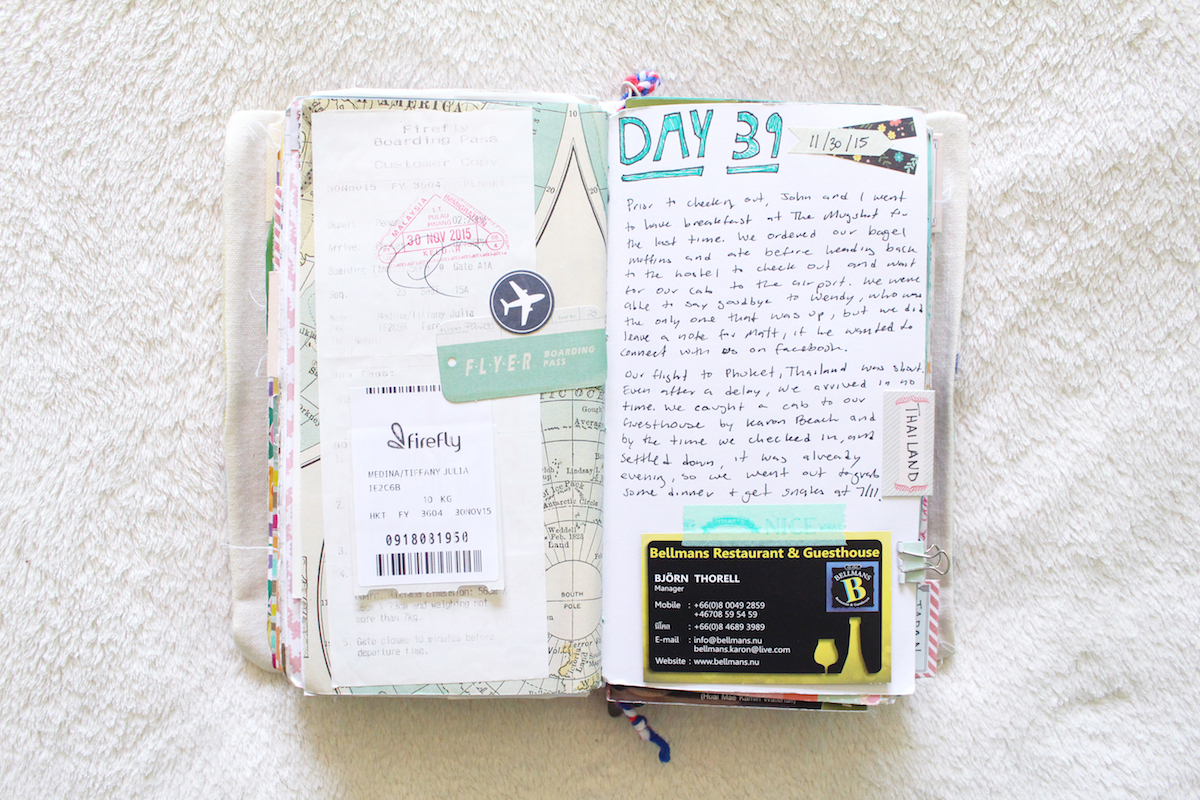 AMERICA
Firefly
Boarding Pass
Customer Copy
30NOV15 FY 3604
MALAYSIA
IMMIGRATION
PULAU
30 NOV 2015
Gate A1A
15A
FLYER BOARDING
PASS
firefly
MEDINA/TIFFANY JULIA
IE2C6B
10 KG
HKT FY 3604 30NOV15
0918081950
and weighing not
more than 7kg.
5. Gate closes 10 minutes before
departure time.
10
20
20
Antarctic Circle
Weddell
Feb. 1823
Land
SOUTH
POLE
DAY 39
11/30/15
Prior to checking out, John and I went
to have breakfast at The Mugshot for
the last time. We ordered our bagel
muffins and ate before heading back
to the hostel to check out and wait
for our cab to the airport. We were
able to say goodbye to Wendy, who was
the only one that was up, but we did
leave a note for Matt, if he wanted to
connect with us on facebook.
Our flight to Phuket, Thailand was short.
Even after a delay, we arrived in no
time. We caught a cab to our
Guesthouse by Karon Beach and
by the time we checked in, and
settled down, it was already
evening, so we went out to grab
some dinner + get snacks at 7/11.
THAILAND
NICE
Bellmans Restaurant & Guesthouse
BJÖRN THORELL
Manager
BELLMANS
B
Mobile : +66(0)8 0049 2859
+46708 59 54 59
: +66(0)8 4689 3989
E-mail : info@bellmans.nu
bellmans.karon@live.com
Website : www.bellmans.nu